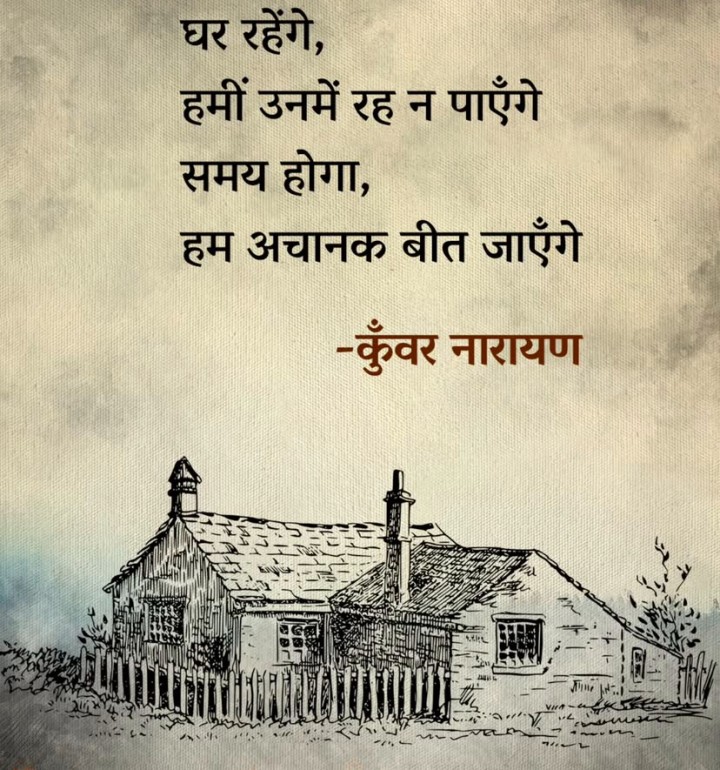 घर रहेंगे,
हमीं उनमें रह न पाएँगे
समय होगा,
हम अचानक बीत जाएँगे
-कुँवर नारायण